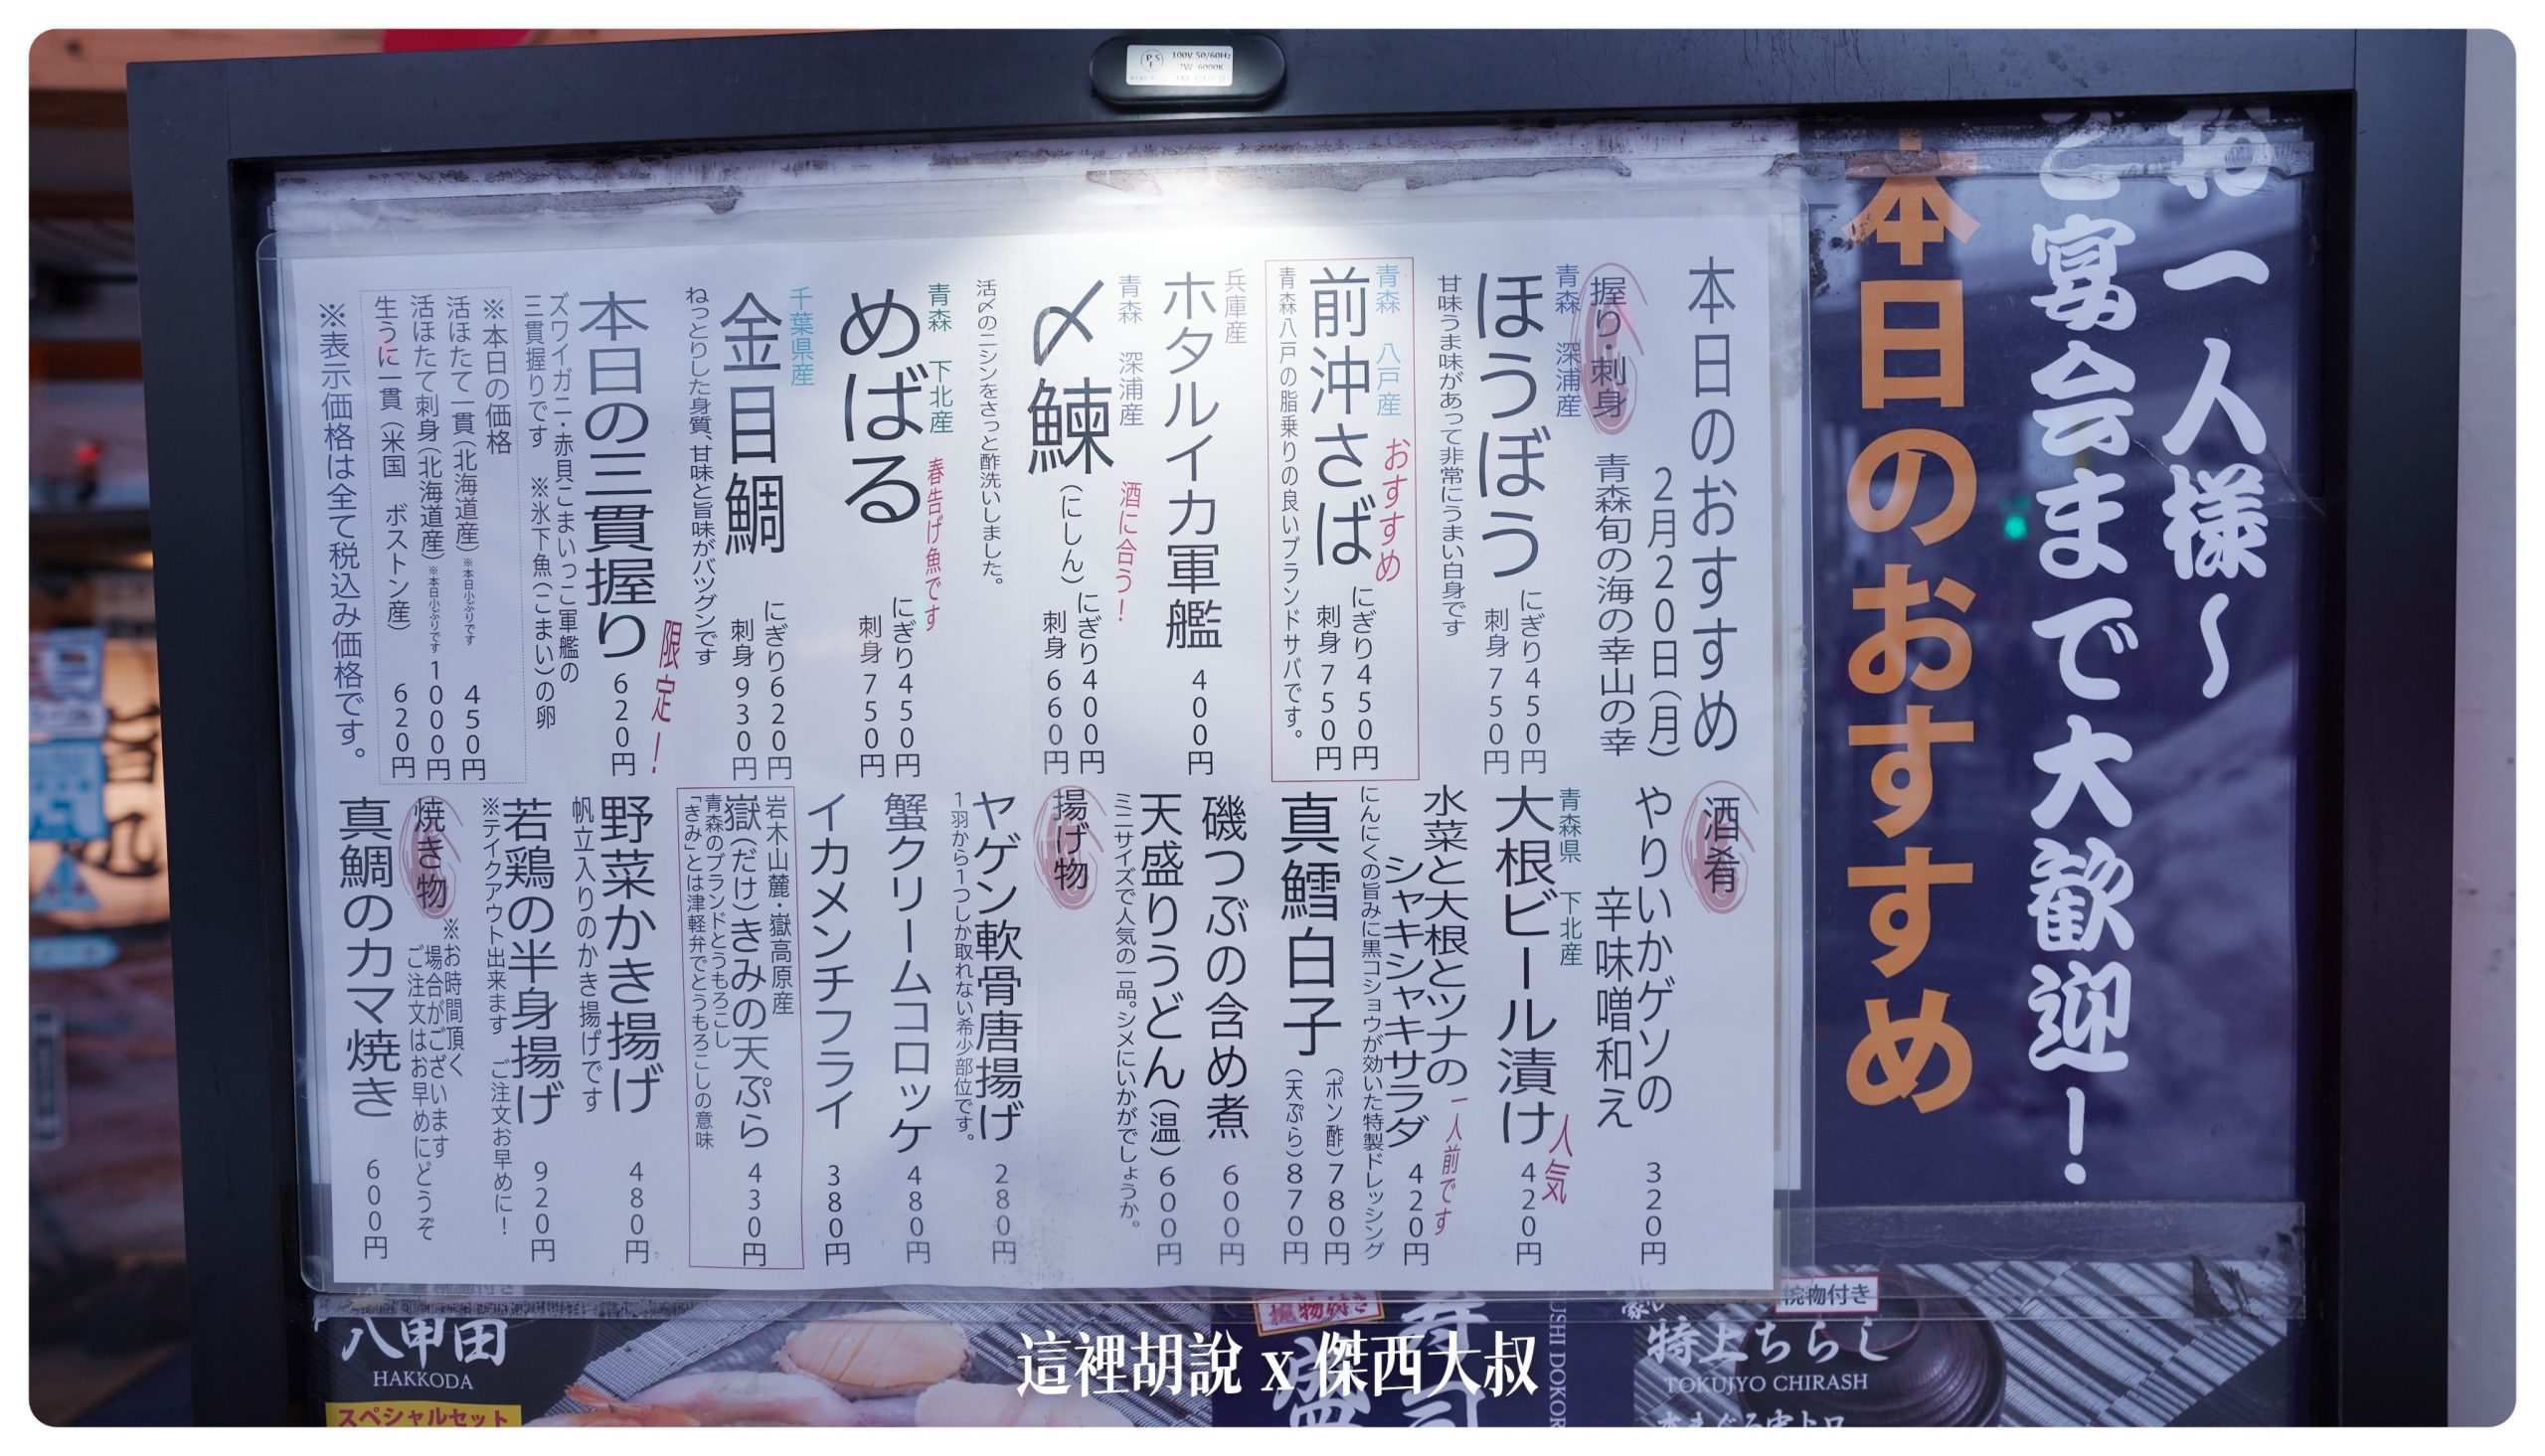 100V 50/60Hz
7W 6000K
お一人様〜
ご宴会まで大歓迎！
本日のおすすめ
本日のおすすめ
2月20日(月)
握り・刺身
青森旬の海の幸山の幸
青森 深浦産
ほうぼう
にぎり450円
刺身 750円
甘味うま味があって非常にうまい白身です
青森 八戸産
おすすめ
前沖さば
にぎり450円
刺身 750円
青森八戸の脂乗りの良いブランドサバです。
兵庫産
ホタルイカ軍艦 400円
青森 深浦産
酒に合う！
〆鰊(にしん)
にぎり400円
刺身 660円
活〆のニシンをさっと酢洗いしました。
青森 下北産
春告げ魚です
めばる
にぎり450円
刺身 750円
千葉県産
金目鯛
にぎり620円
刺身 930円
ねっとりした身質、甘味と旨味がバツグンです
限定！
本日の三貫握り 620円
ズワイガニ・赤貝こまいっこ軍艦の
三貫握りです ※氷下魚(こまい)の卵
※本日の価格
活ほたて一貫(北海道産)※本日小ぶりです 450円
活ほたて刺身(北海道産)※本日小ぶりです 1000円
生うに一貫(米国 ボストン産) 620円
※表示価格は全て税込み価格です。
酒肴
やりいかゲソの
辛味噌和え 320円
青森県 下北産
大根ビール漬け 420円
人気
水菜と大根とツナの
シャキシャキサラダ 420円
一人前です
にんにくの旨みに黒コショウが効いた特製ドレッシング
真鱈白子
(ポン酢)780円
(天ぷら)870円
磯つぶの含め煮 600円
天盛りうどん(温)600円
ミニサイズで人気の一品。シメにいかがでしょうか。
揚げ物
ヤゲン軟骨唐揚げ 280円
1羽から1つしか取れない希少部位です。
蟹クリームコロッケ 480円
イカメンチフライ 380円
岩木山麓・嶽高原産
嶽(だけ)きみの天ぷら 430円
青森のブランドとうもろこし
「きみ」とは津軽弁でとうもろこしの意味
野菜かき揚げ 480円
帆立入りのかき揚げです
若鶏の半身揚げ 920円
※テイクアウト出来ます ご注文お早めに！
焼き物
※お時間頂く
場合がございます
ご注文はお早めにどうぞ
真鯛のカマ焼き 600円
八甲田
HAKKODA
スペシャルセット
椀物付き
寿司
USHI DOKOR
椀物付き
特上ちらし
TOKUJYO CHIRASH
這裡胡說 x 傑西大叔